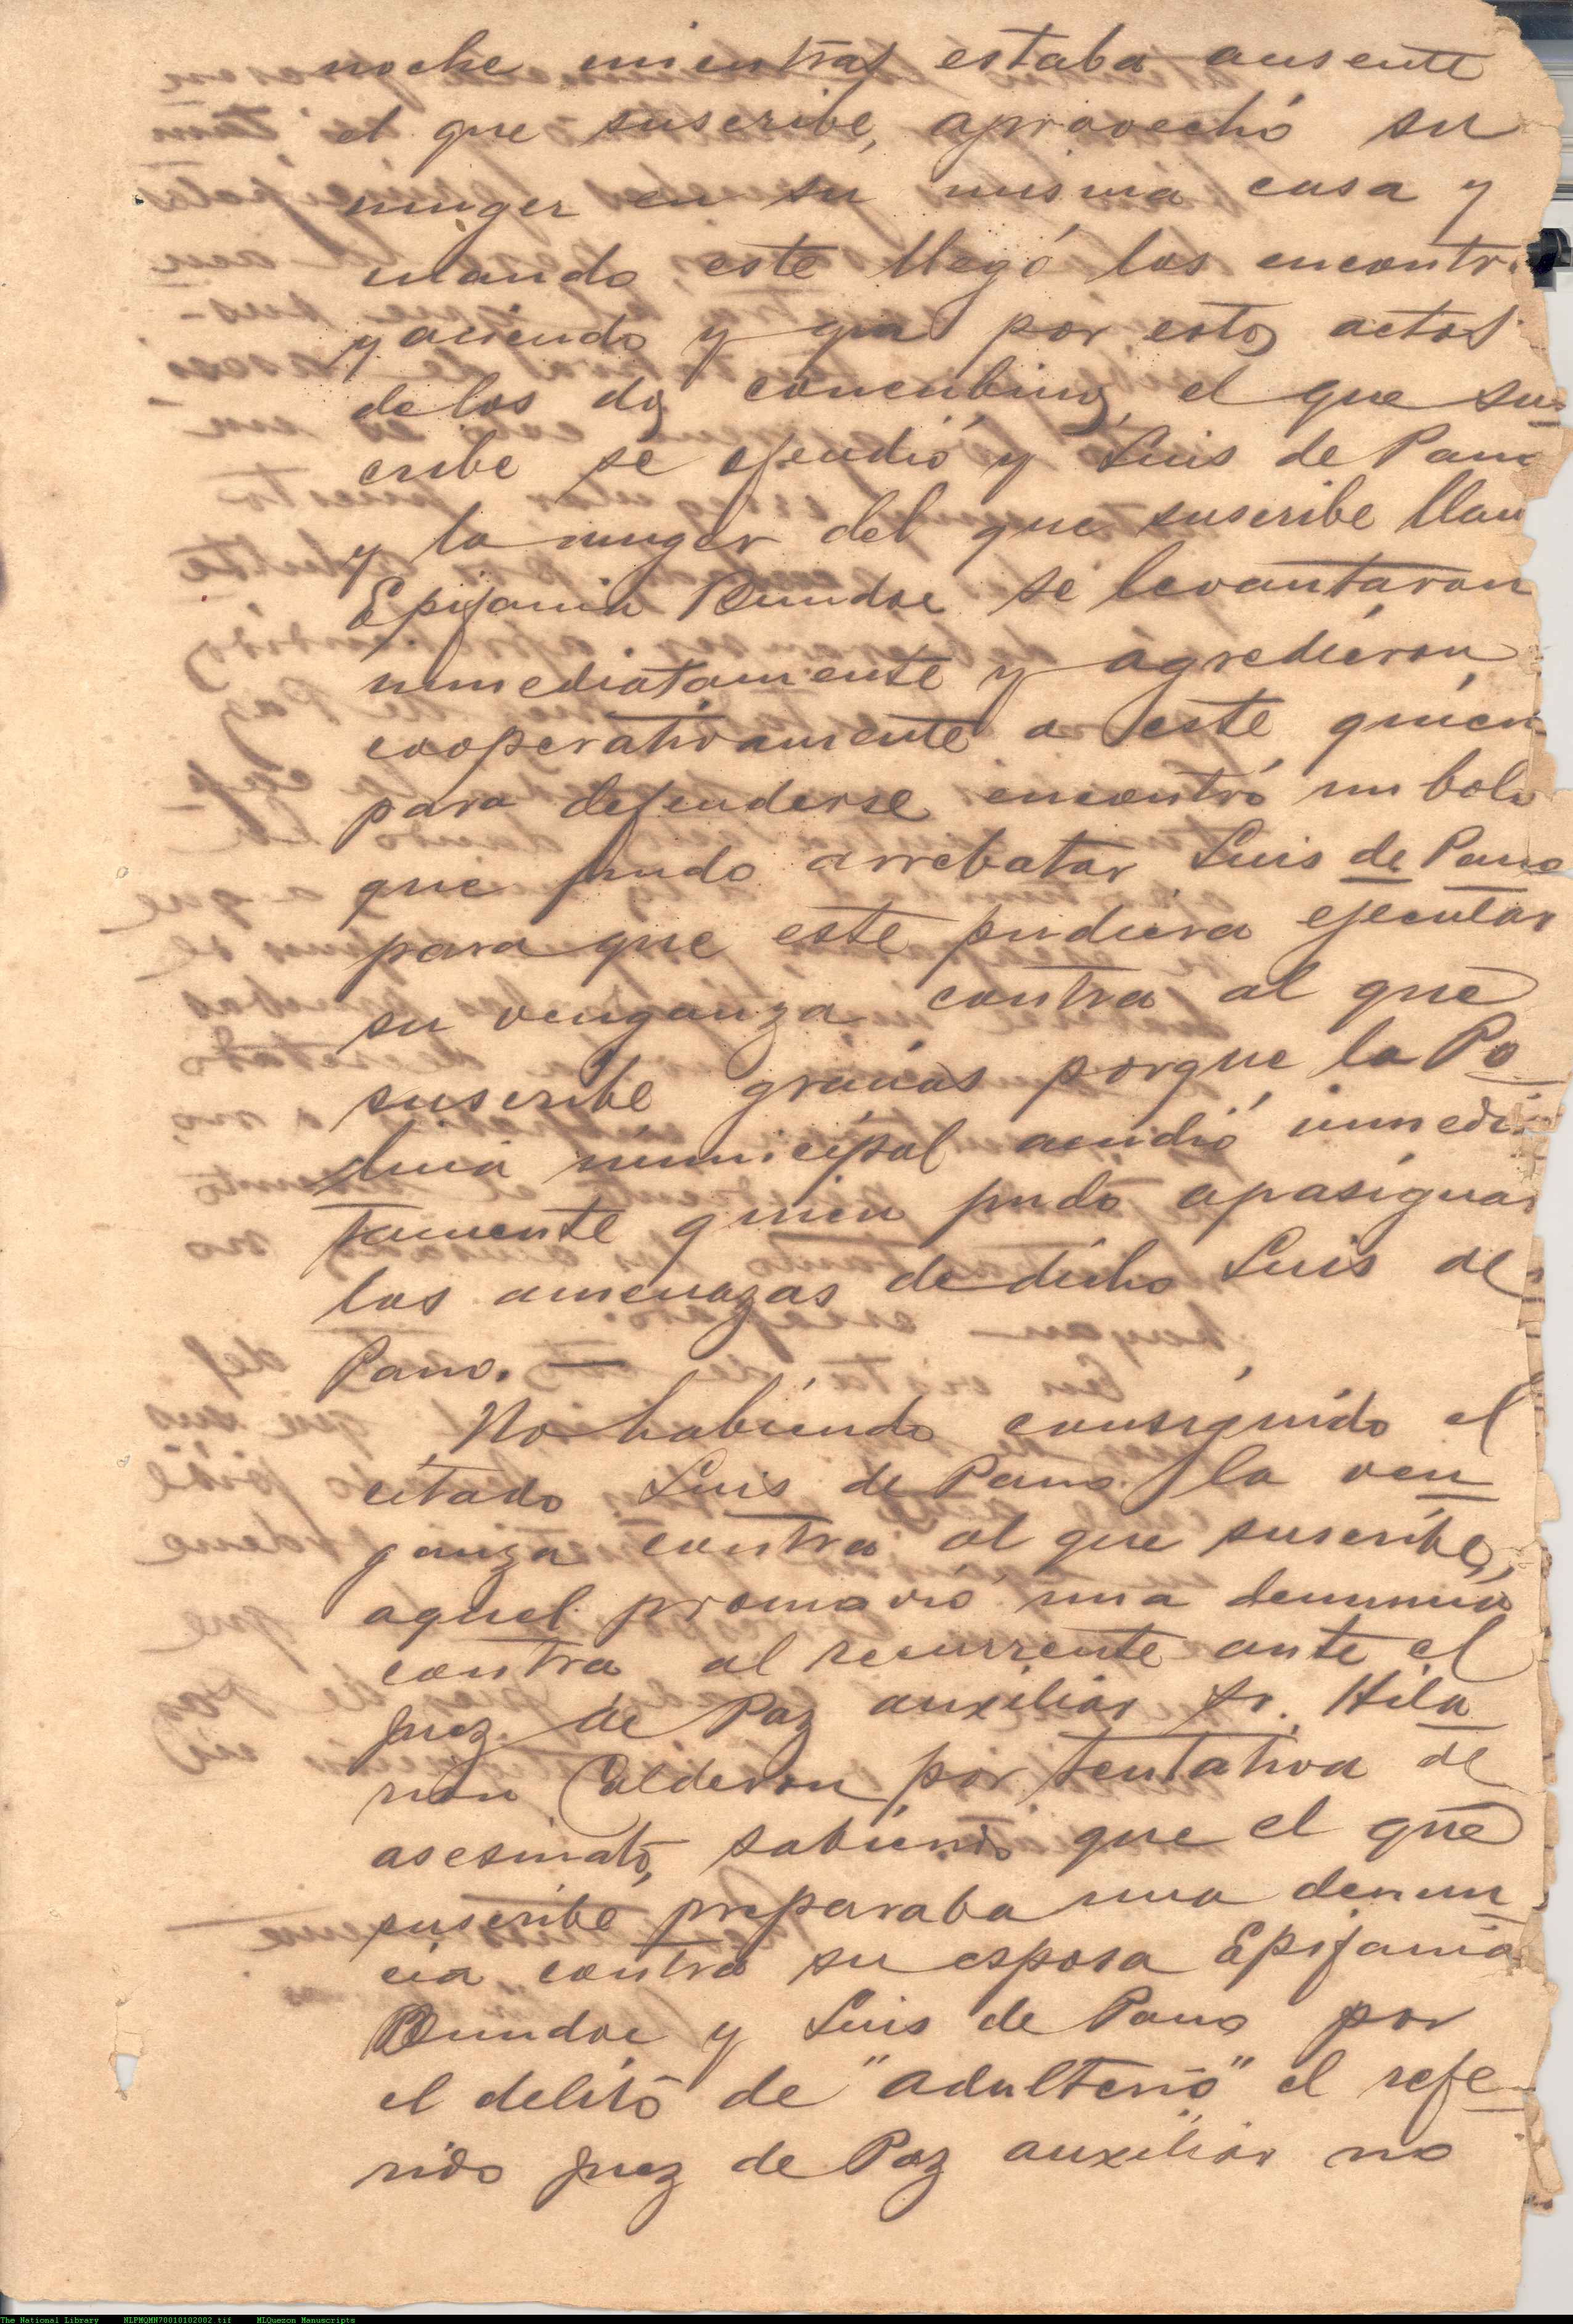 noche mientras estaba ausente
el que suscribe, aprovechó su
muger en su misma casa y
cuando este llegó los encontr
yaciendo y que por estos actos
de los dos concubinos, el que sus
cribe se ofendió y Luis de Pano
y la muger del que suscribe llam
Epifania Dumdoe se levantaron
inmediatamente y agredieron
cooperativamente a este quien
para defenderse encontró un bolo
que pudo arrebatar Luis de Pano
para que este pudiera ejecutar
su venganza contra al que
suscribe gracias porque la Po
licia municipal acudió inmedia
tamente quien pudo apasiguar
las amenazas de dicho Luis de
Pano. —
No habiendo conseguido el
citado Luis de Pano la ven
ganza contra al que suscribe,
aquel promovió una denuncia
contra al recurrente ante el
Juez de Paz auxiliar Sr. Hila
rion Calderon por tentativa de
asesinato, sabiendo que el que
suscribe preparaba una denun
cia contra su esposa Epifania
Dumdoe y Luis de Pano por
el delito de "adulterio" el refe
rido Juez de Paz auxiliar no
The National Library NLPMQMN70010102002.tif MLQuezon Manuscripts